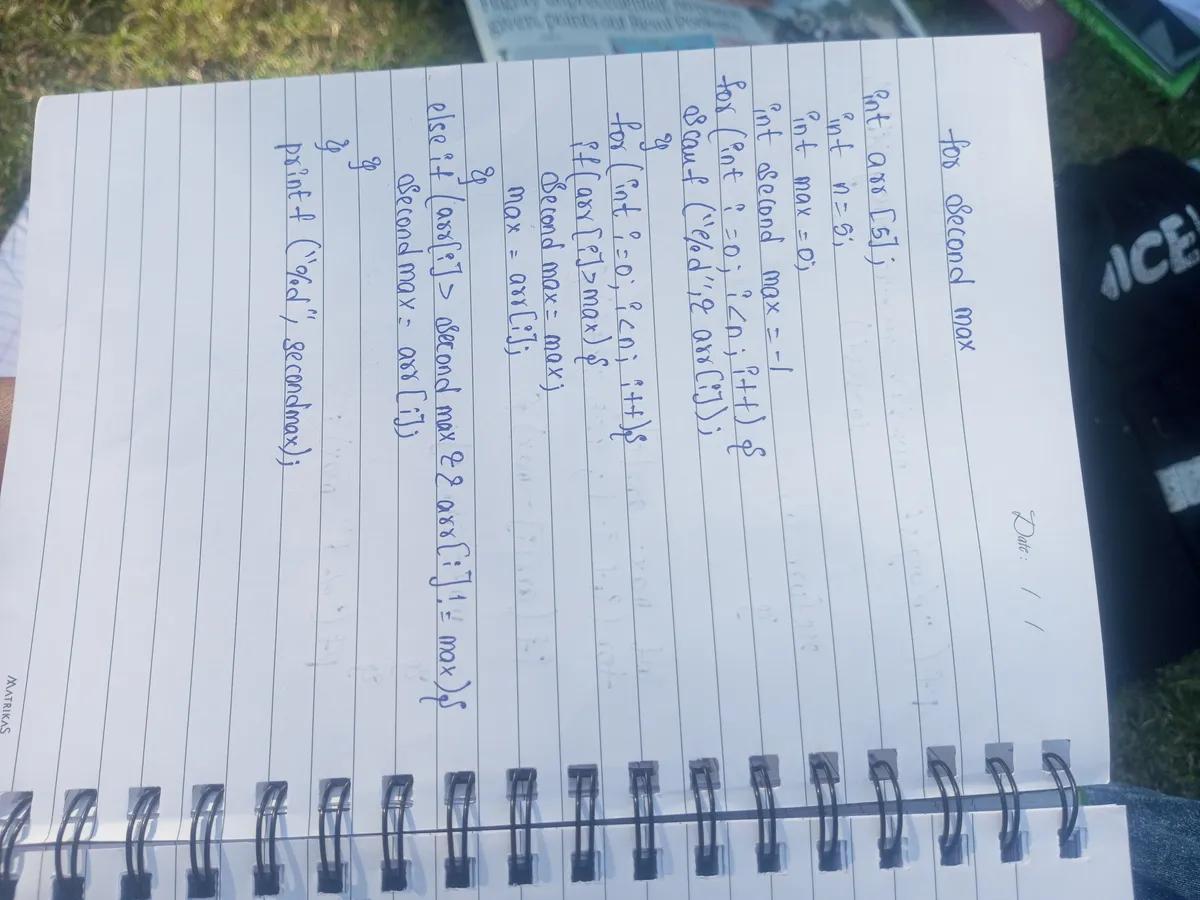 highly unprecedented
given, points out
Date: / /
for second max
int arr [5];
int n = 5;
int max = 0;
int second max = -1
for (int i = 0; i < n; i++) {
scanf ("%d", & arr[i]);
}
for (int i = 0; i < n; i++) {
if (arr[i] > max) {
second max = max;
max = arr[i];
}
else if (arr[i] > second max && arr[i] != max) {
second max = arr[i];
}
}
printf ("%d", secondmax);
MATRIKAS
NICE